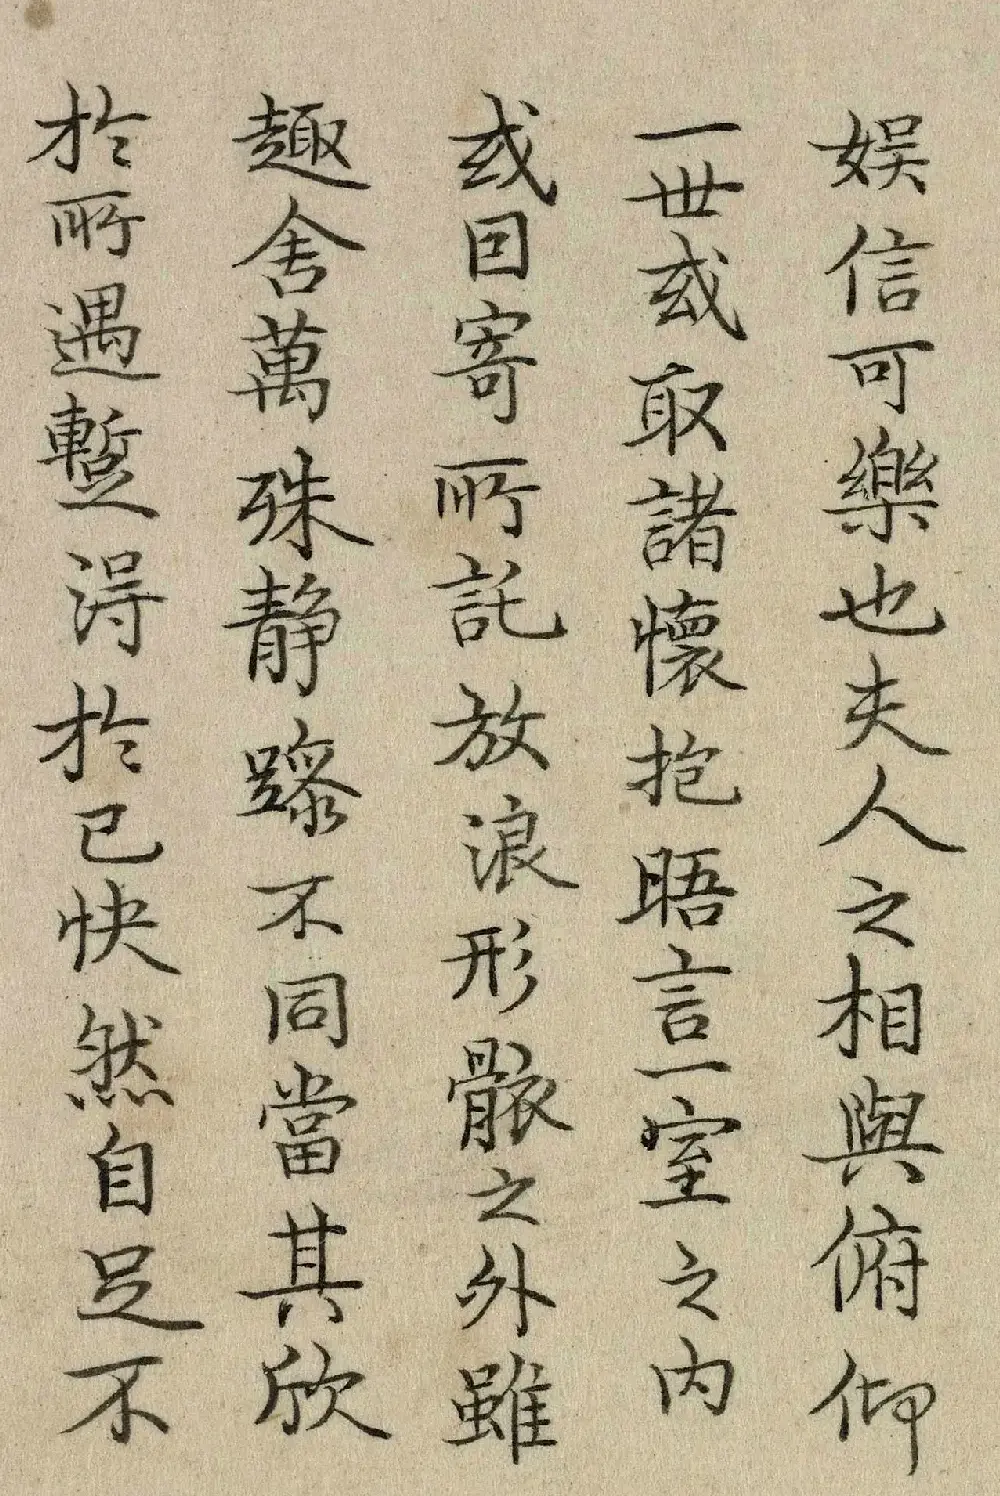 娛信可樂也夫人之相與俯仰
一世或取諸懷抱晤言一室之内
或因寄所託放浪形骸之外雖
趣舍萬殊静躁不同當其欣
於所遇蹔得於己快然自足不